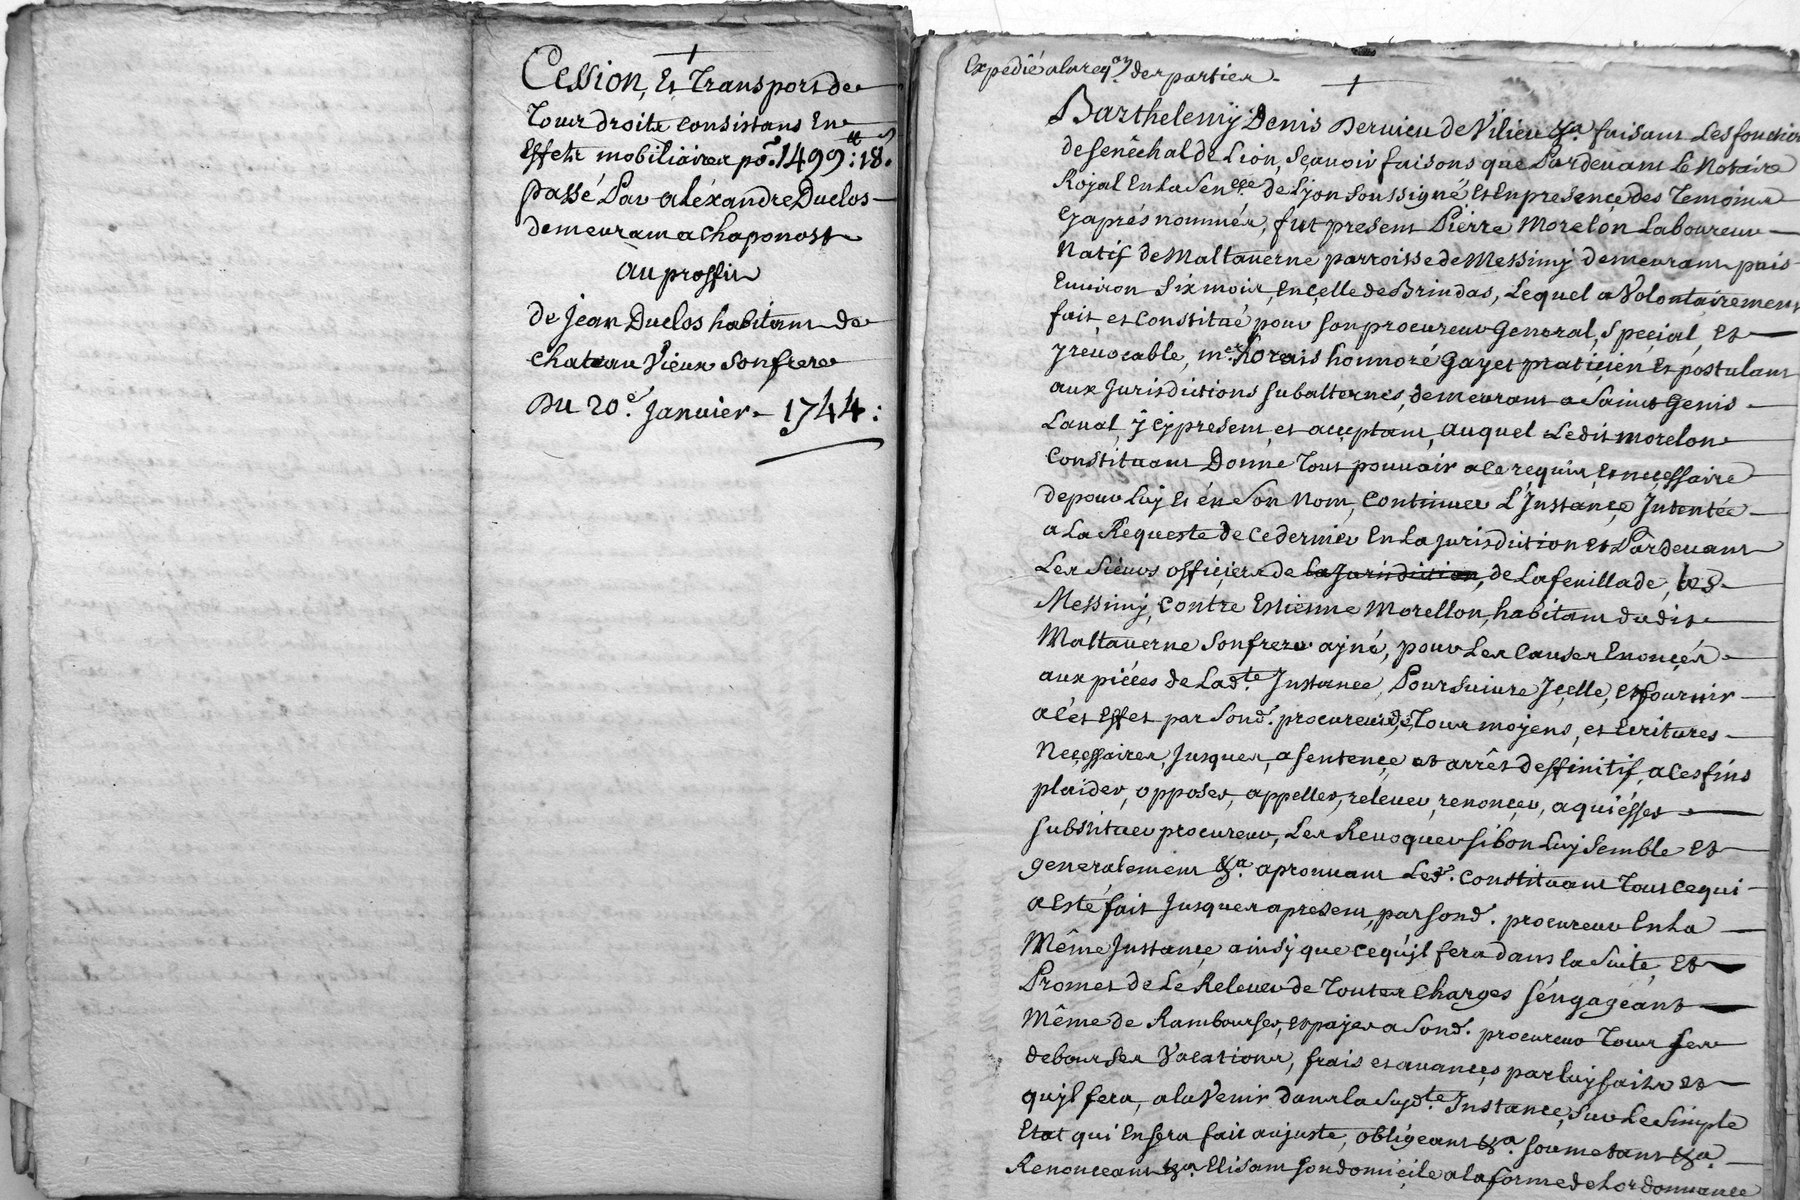 Cession, Et Transport de
Tous droits consistans En
Effets mobiliaires po.r 1499.tt: 18.s
passé Par aléxandre Duclos
demeurant a Chaponost
au proffit
de Jean Duclos habitant de
chateau Vieux son frere
Du 20.e Janvier 1744:
Expédié a la req.on des parties
Barthelemÿ Denis Dervieu de Vilieu &a. faisant Les fonctions
de senêchal de Lion, sçavoir faisons que Pardevant Le Notaire
Roÿal En La Sen.ée de Lÿon soussigné et En presence des Temoins
Cÿ aprés nommés, fut present Pierre Morelon Laboureur
Natif de Maltaverne parroisse de Messimÿ demeurant puis
Environ Six mois, En Celle de Brindas, Lequel a Volontairement
fait, et Constitué pour son procureur General, Special, et
Jrevocable, m.e honnoré Gayet praticien Et postulant
aux Jurisdictions subalternes, demeurant a Saint Genis
Laval ÿ cÿ present et acceptant, auquel Ledit morelon
Constituant Donne Tout pouvoir a ce requis, et necessaire
de pour Luÿ et én son nom, Continuer L'Jnstance Jntentée
a La Requeste de Ce dernier En La Jurisdiction et Pardevant
Les Sieurs officiers de la Jurisdiction, de Lafeuillade, et
Messimÿ, Contre Estienne Morellon, habitant dudit
Maltaverne son frere aÿné, pour Les Causes Enoncés
aux piéces de Lad.te Jnstance, Poursuivre Jcelle, et fournir
a cét Effet par sond. procureur de Tous moÿens, et Ecritures
Necessaires, Jusques, a sentence et arrêt deffinitif, a Ces fins
plaider, opposer, appeller, relever, renoncer, aquiésser
substituer procureur, Les Revoquer si bon Luÿ Semble et
generalement &a. aprouvant Led. Constituant Tout Ce qui
a Esté fait Jusques a present, par sond. procureur En La
Même Jnstance ainsÿ que Ce qu'jl fera dans la Suite, et
Promet de Le Relever de Toutes Charges s'éngagéant
Même de Rambourser, et paÿer a Sond. procureur Tous ses
debourses Vacations, frais et avances par luÿ faits et
qu'jl fera, a la Venir dans la Susd.te Jnstance, Sur Le Simple
Etat qui En Sera fait au juste, obligeant &a. soumetant &a.
Renonceant &a. Elisant son domicile a la forme de Lordonnance